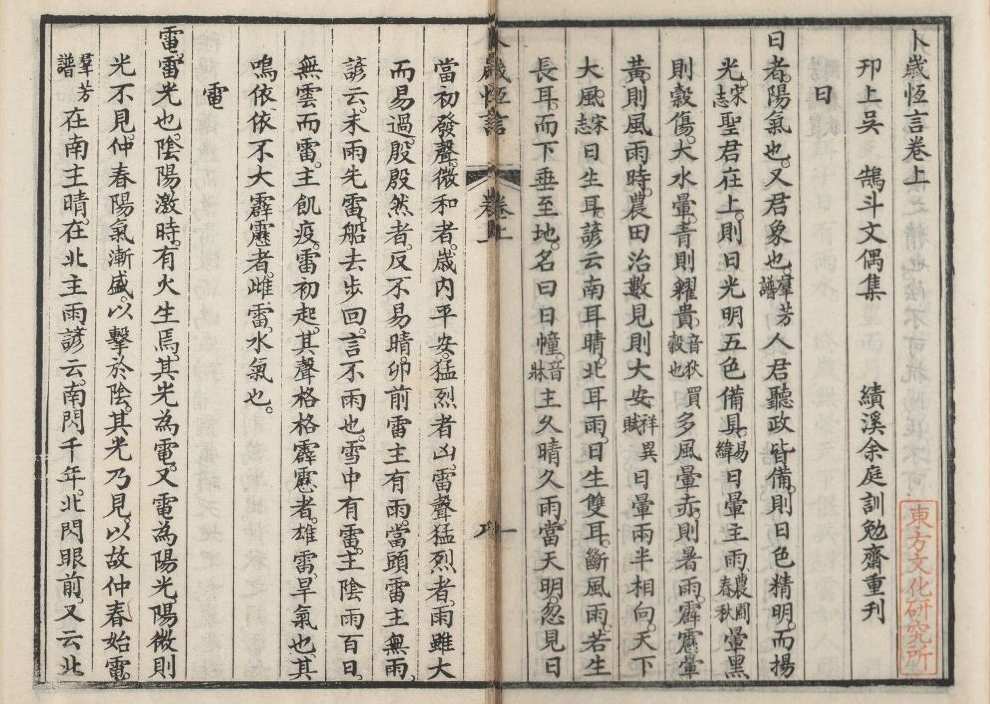 卜歲恆言卷上
邗上吳 鵠斗文偶集 績溪余庭訓勉齋重刊
東方文化研究所
日
日者。陽氣也。又君象也羣芳譜人君聽政皆備。則日色精明。而揚
光。宋志聖君在上。則日光明五色備具。易緯日暈主雨。農圃春秋暈黑
則穀傷。大水暈。青則糴貴。音狄買穀也多風暈赤。則暑雨。霹靂暈
黃。則風雨時。農田治數見。則大安祥異賦日暈兩半相向。天下
大風。宋志日生耳。諺云南耳晴。北耳雨。日生雙耳。斷風雨。若生
長耳。而下垂至地。名曰日幢。音牀主久晴久雨。當天明。忽見日
卜歲恆言 卷上 一
當初發聲。微和者。歲內平安。猛烈者凶。雷聲猛烈者。雨雖大
而易過。殷殷然者。反不易晴。卯前雷主有雨。當頭雷主無雨。
諺云。未雨先雷。船去步回。言不雨也。雪中有雷。主陰雨百日。
無雲而雷。主飢疫。雷初起。其聲格格霹靂者。雄雷。旱氣也其
鳴依依不大霹靂者。雌雷。水氣也。
電
電雷光也。陰陽激時。有火生焉。其光為電。又電為陽光陽微則
光不見。仲春陽氣漸盛。以擊於陰。其光乃見。以故仲春始電。
羣芳譜在南主晴。在北主雨諺云。南閃千年。北閃眼前。又云北